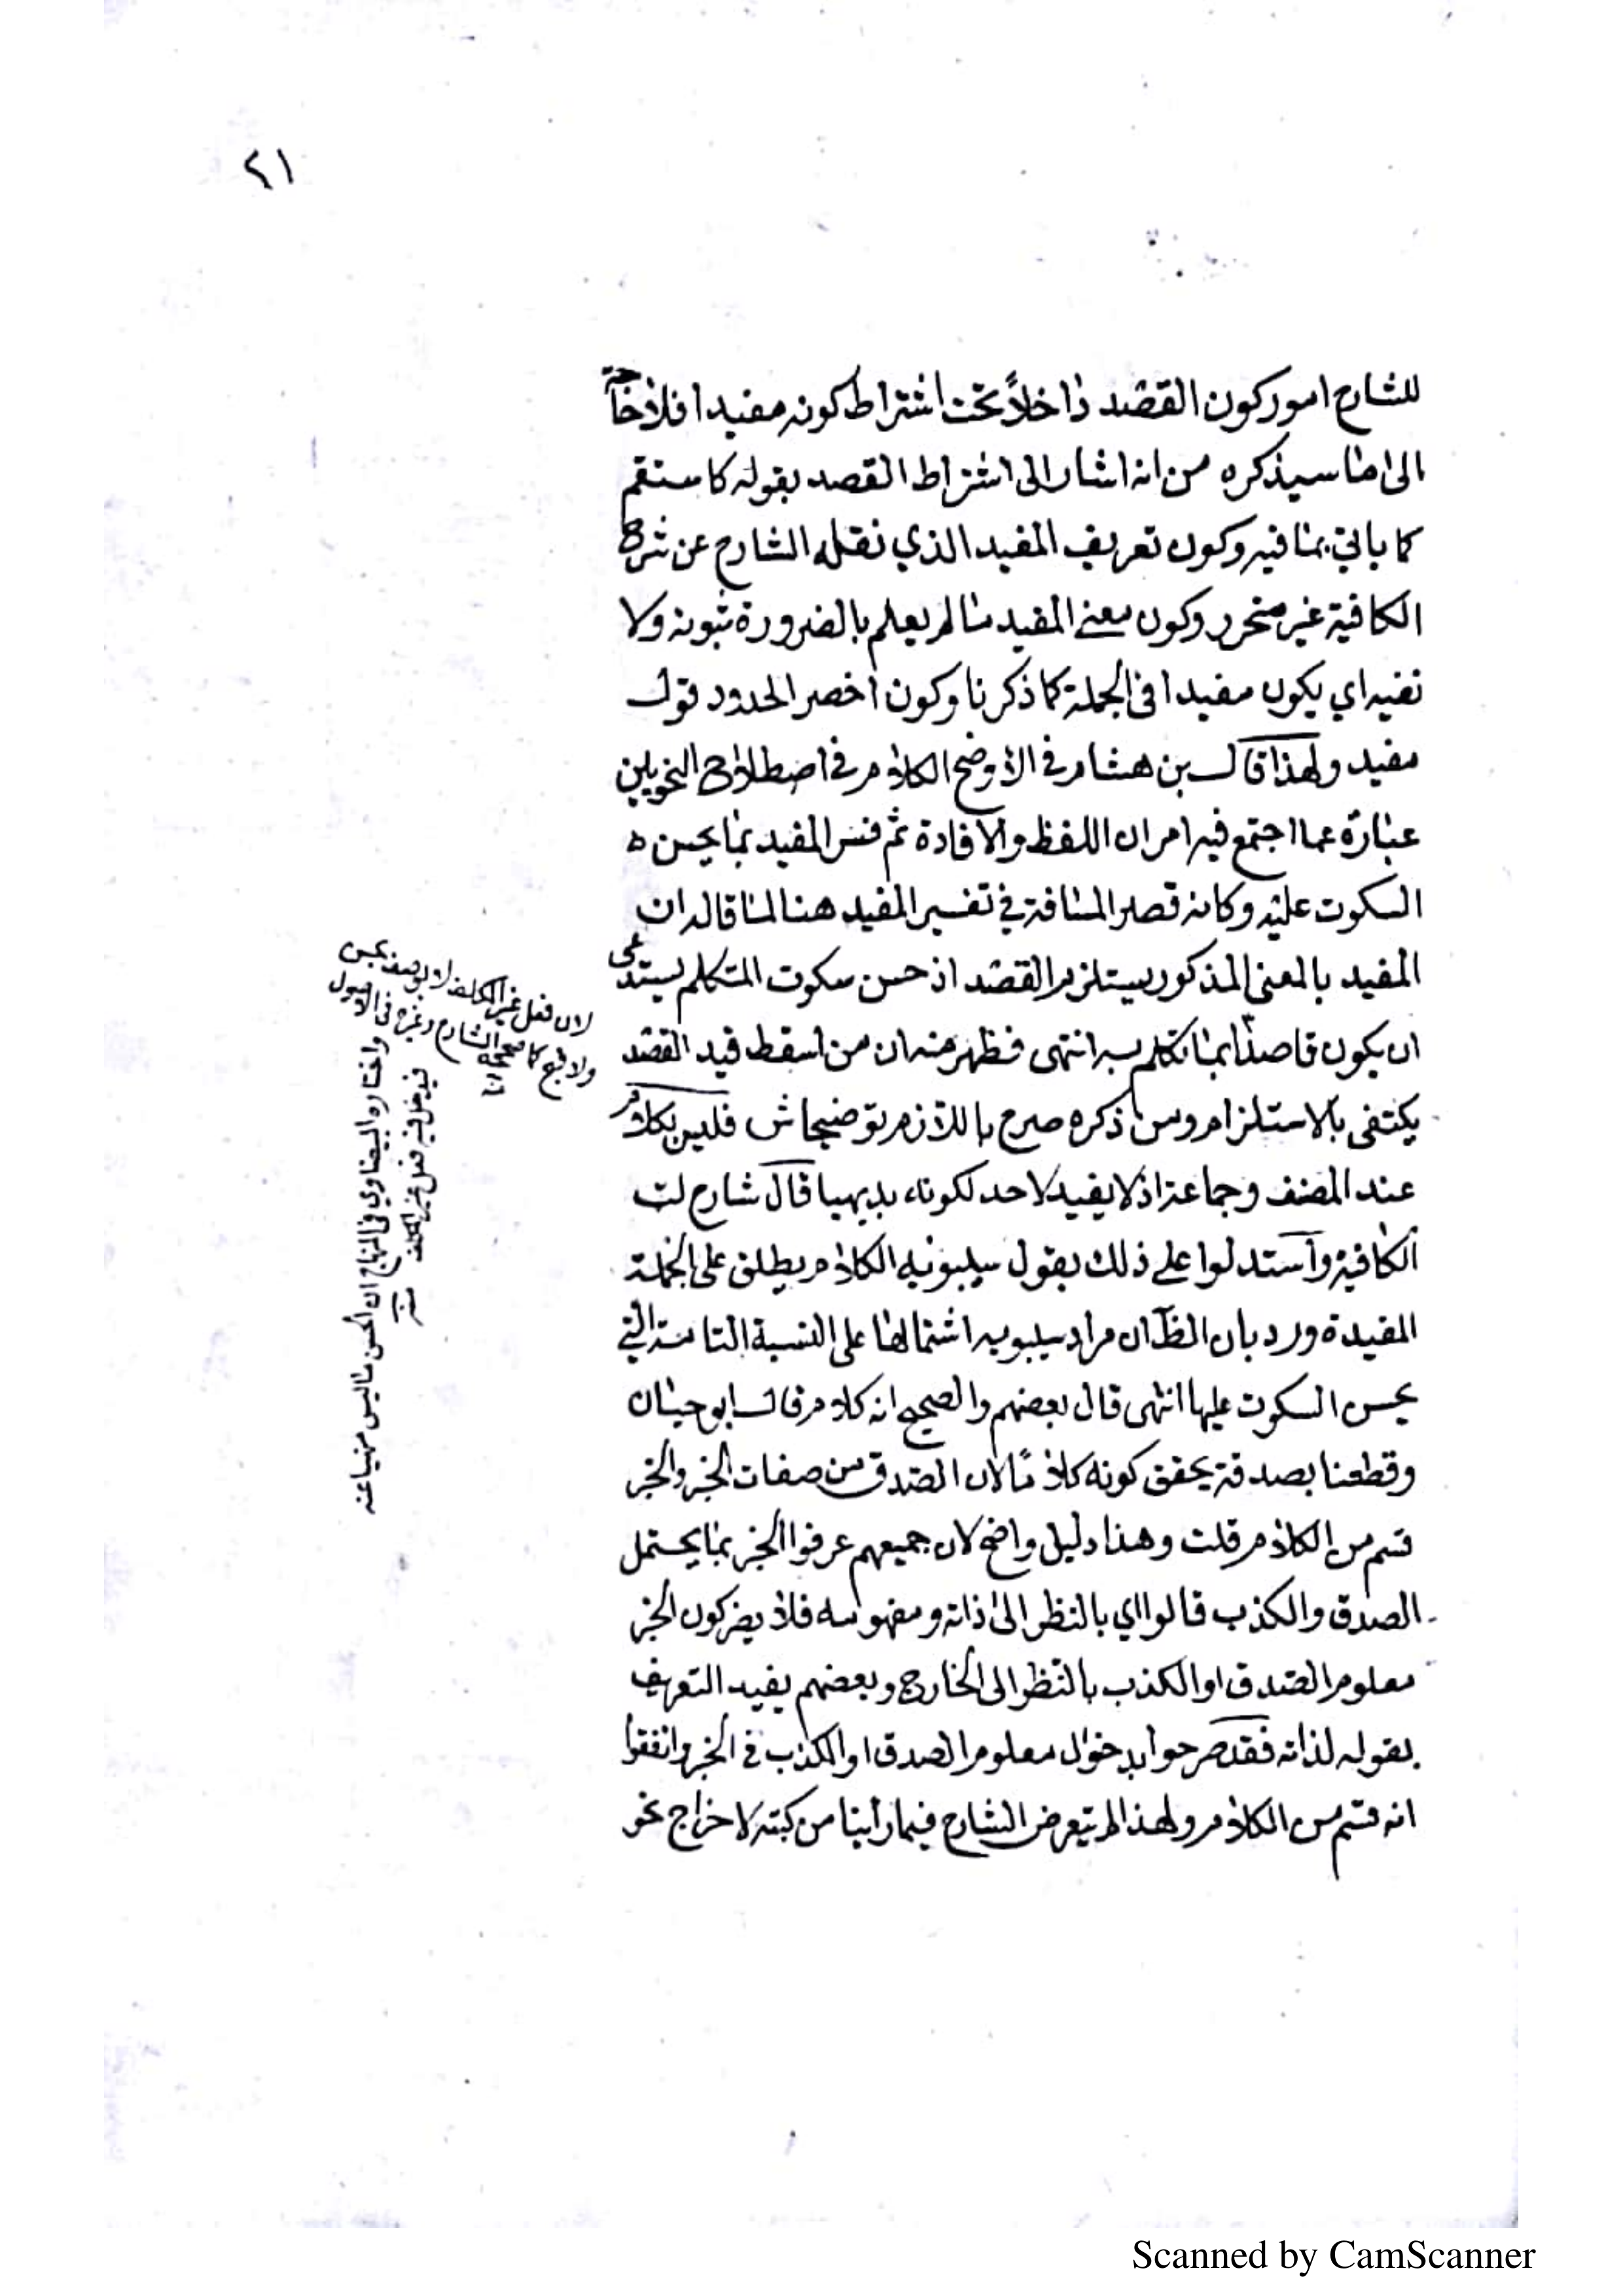 ٢١
للشارح امور كون القصد داخلاً تحت اشتراط كونه مفيدا فلا حاجة
الى ما سيذكره من انه اشار الى اشتراط القصد بقوله كاستقم
كما ياتي بما فيه وكون تعريف المفيد الذي نقله الشارح عن شرح
الكافية غير محرر وكون معنى المفيد ما لم يعلم بالضرورة ثبوته ولا
نفيه اي يكون مفيدا في الجملة كما ذكرنا وكون اخصر الحدود قول
مفيد ولهذا قال بن هشام في الاوضح الكلام في اصطلاح النحويين
عبارة عما اجتمع فيه امران اللفظ والافادة ثم فسر المفيد بما يحسن
السكوت عليه وكانه قصر المسافة في تفسير المفيد هنا لما قاله ان
المفيد بالمعنى المذكور يستلزم القصد اذ حسن سكوت المتكلم يستدعى
ان يكون قاصدا بما تكلم به انتهى فظهر منه ان من اسقط قيد القصد
يكتفى بالاستلزام ومن ذكره صرح باللازم توضيحا ش فليس بكلام
عند المصنف وجماعة اذ لا يفيد لاحد لكونه بديهيا قال شارح لب
الكافية واستدلوا على ذلك بقول سيبويه الكلام يطلق على الجملة
المفيدة ورد بان الظ ان مراد سيبويه اشتمالها على النسبة التامة التي
يحسن السكوت عليها انتهى قال بعضهم والصحيح انه كلام قال ابو حيان
وقطعنا بصدقه يحقق كونه كلاما لان الصدق من صفات الخبر والخبر
قسم من الكلام قلت وهذا دليل واضح لان جميعهم عرفوا الخبر بما يحتمل
الصدق والكذب قالوا اي بالنظر الى ذاته ومفهومه فلا يضر كون الخبر
معلوم الصدق او الكذب بالنظر الى الخارج وبعضهم يقيد التعريف
بقوله لذاته فقد صرحوا بدخول معلوم الصدق او الكذب في الخبر واتفقوا
انه قسم من الكلام ولهذا لم يتعرض الشارح فيما راينا من كتبه لاخراج نحو
لان فعل غير المكلف لا يوصف بحسن
ولا قبح كما صححه الشارح وغيره في الاصول
واختاره البيضاوي في المنهاج ان الحسن ما ليس منهيا عنه
فيدخل فيه فعل غير المكلف
Scanned by CamScanner